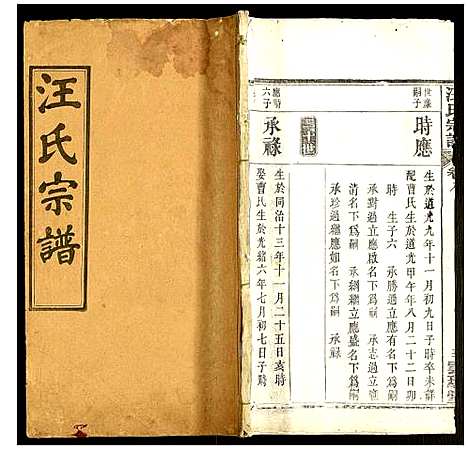 汪氏宗譜
汪氏宗譜
卷
世
嗣子
時應
生於道光九年十一月初九日子時卒未詳
配曹氏生於道光甲午年八月二十二日卯
時 生子六 承勝過立應有名下爲嗣
承對過立應啟名下爲嗣 承志過立應
清名下爲嗣 承綱繼立應盛名下爲嗣
承珍過繼應如名下爲嗣 承祿
應時
六子
承祿
生於同治十三年十一月二十五日亥時
娶曹氏生於光緒六年七月初七日子時